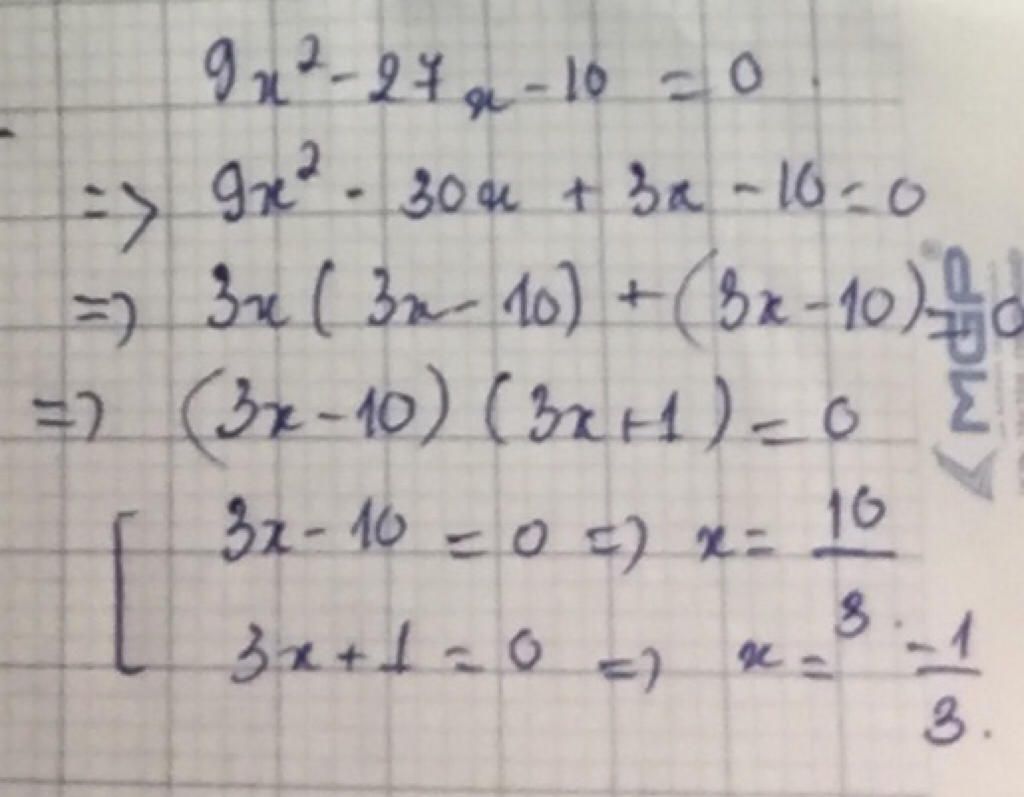 9x² - 27x - 10 = 0
=> 9x² - 30x + 3x - 10 = 0
=> 3x ( 3x - 10) + (3x - 10) = 0
=> (3x - 10) (3x + 1) = 0
[ 3x - 10 = 0 => x = 10/3.
3x + 1 = 0 => x = -1/3.
MGP®